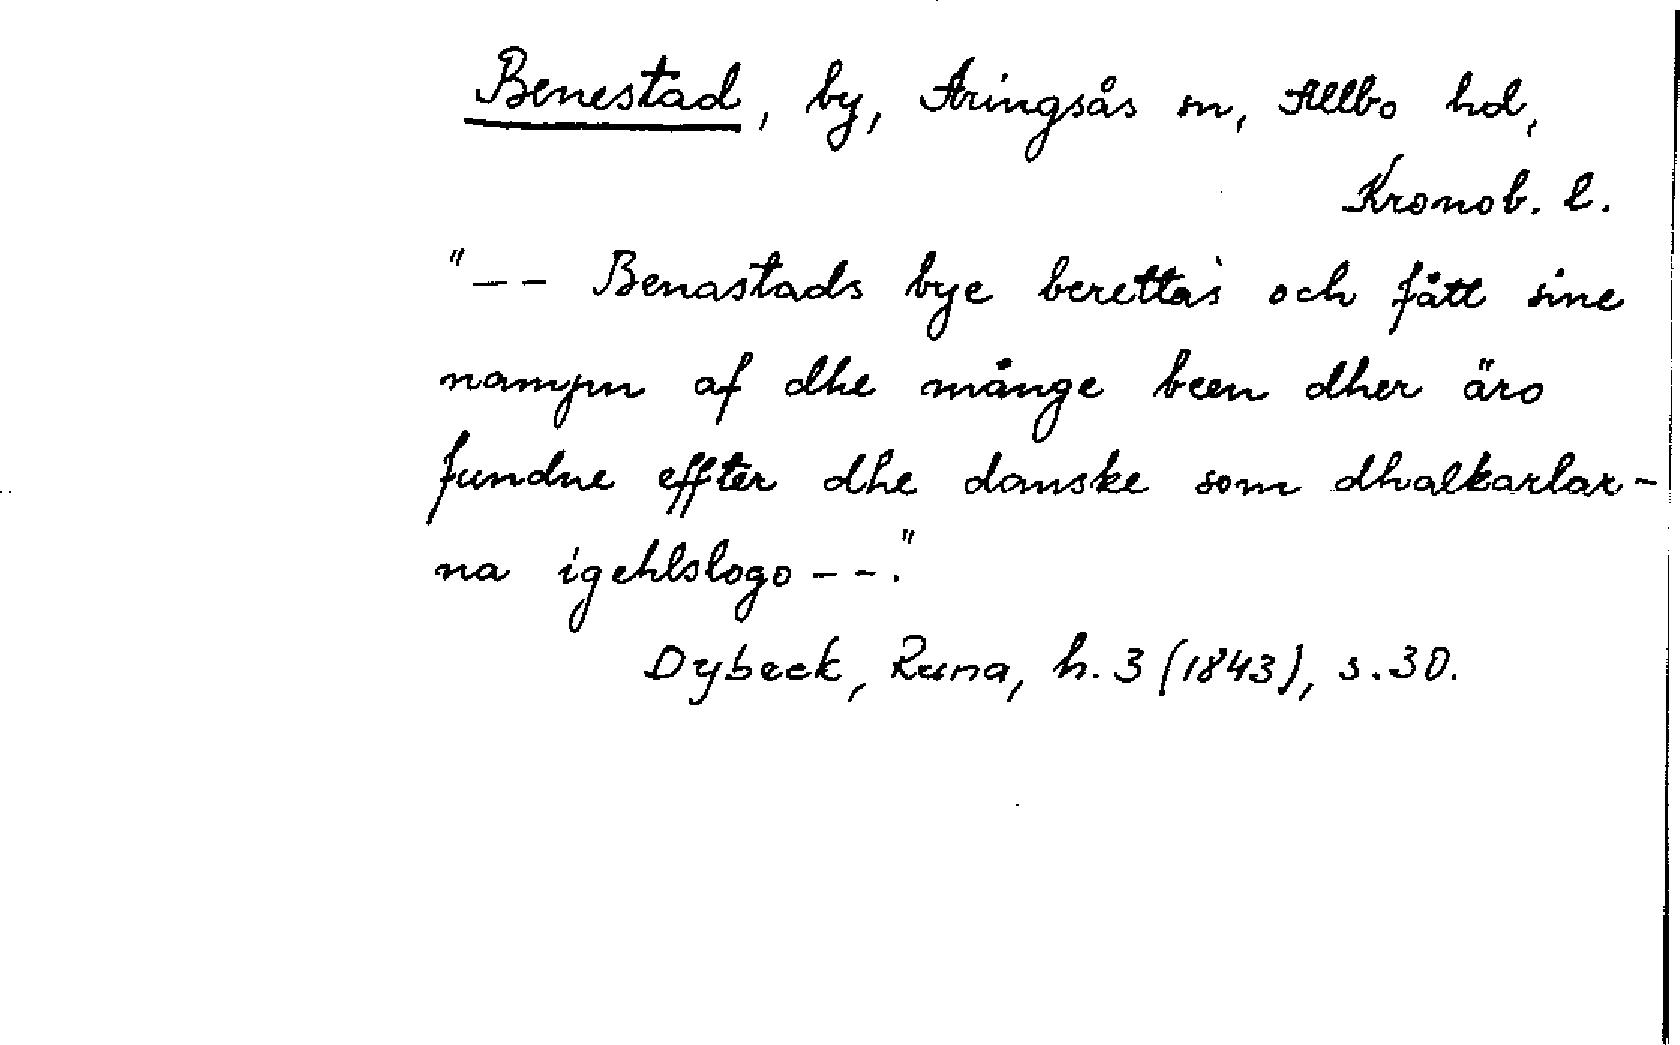 Benestad, by, Aringsås sn, Allbo hd,
Kronob. l.
"-- Benastads bye berettas och fått sine
nampn af dhe många been dher äro
fundne effter dhe danske som dhalkarlar-
na igehlslogo --."
Dybeck, Runa, h. 3 (1843), s. 30.